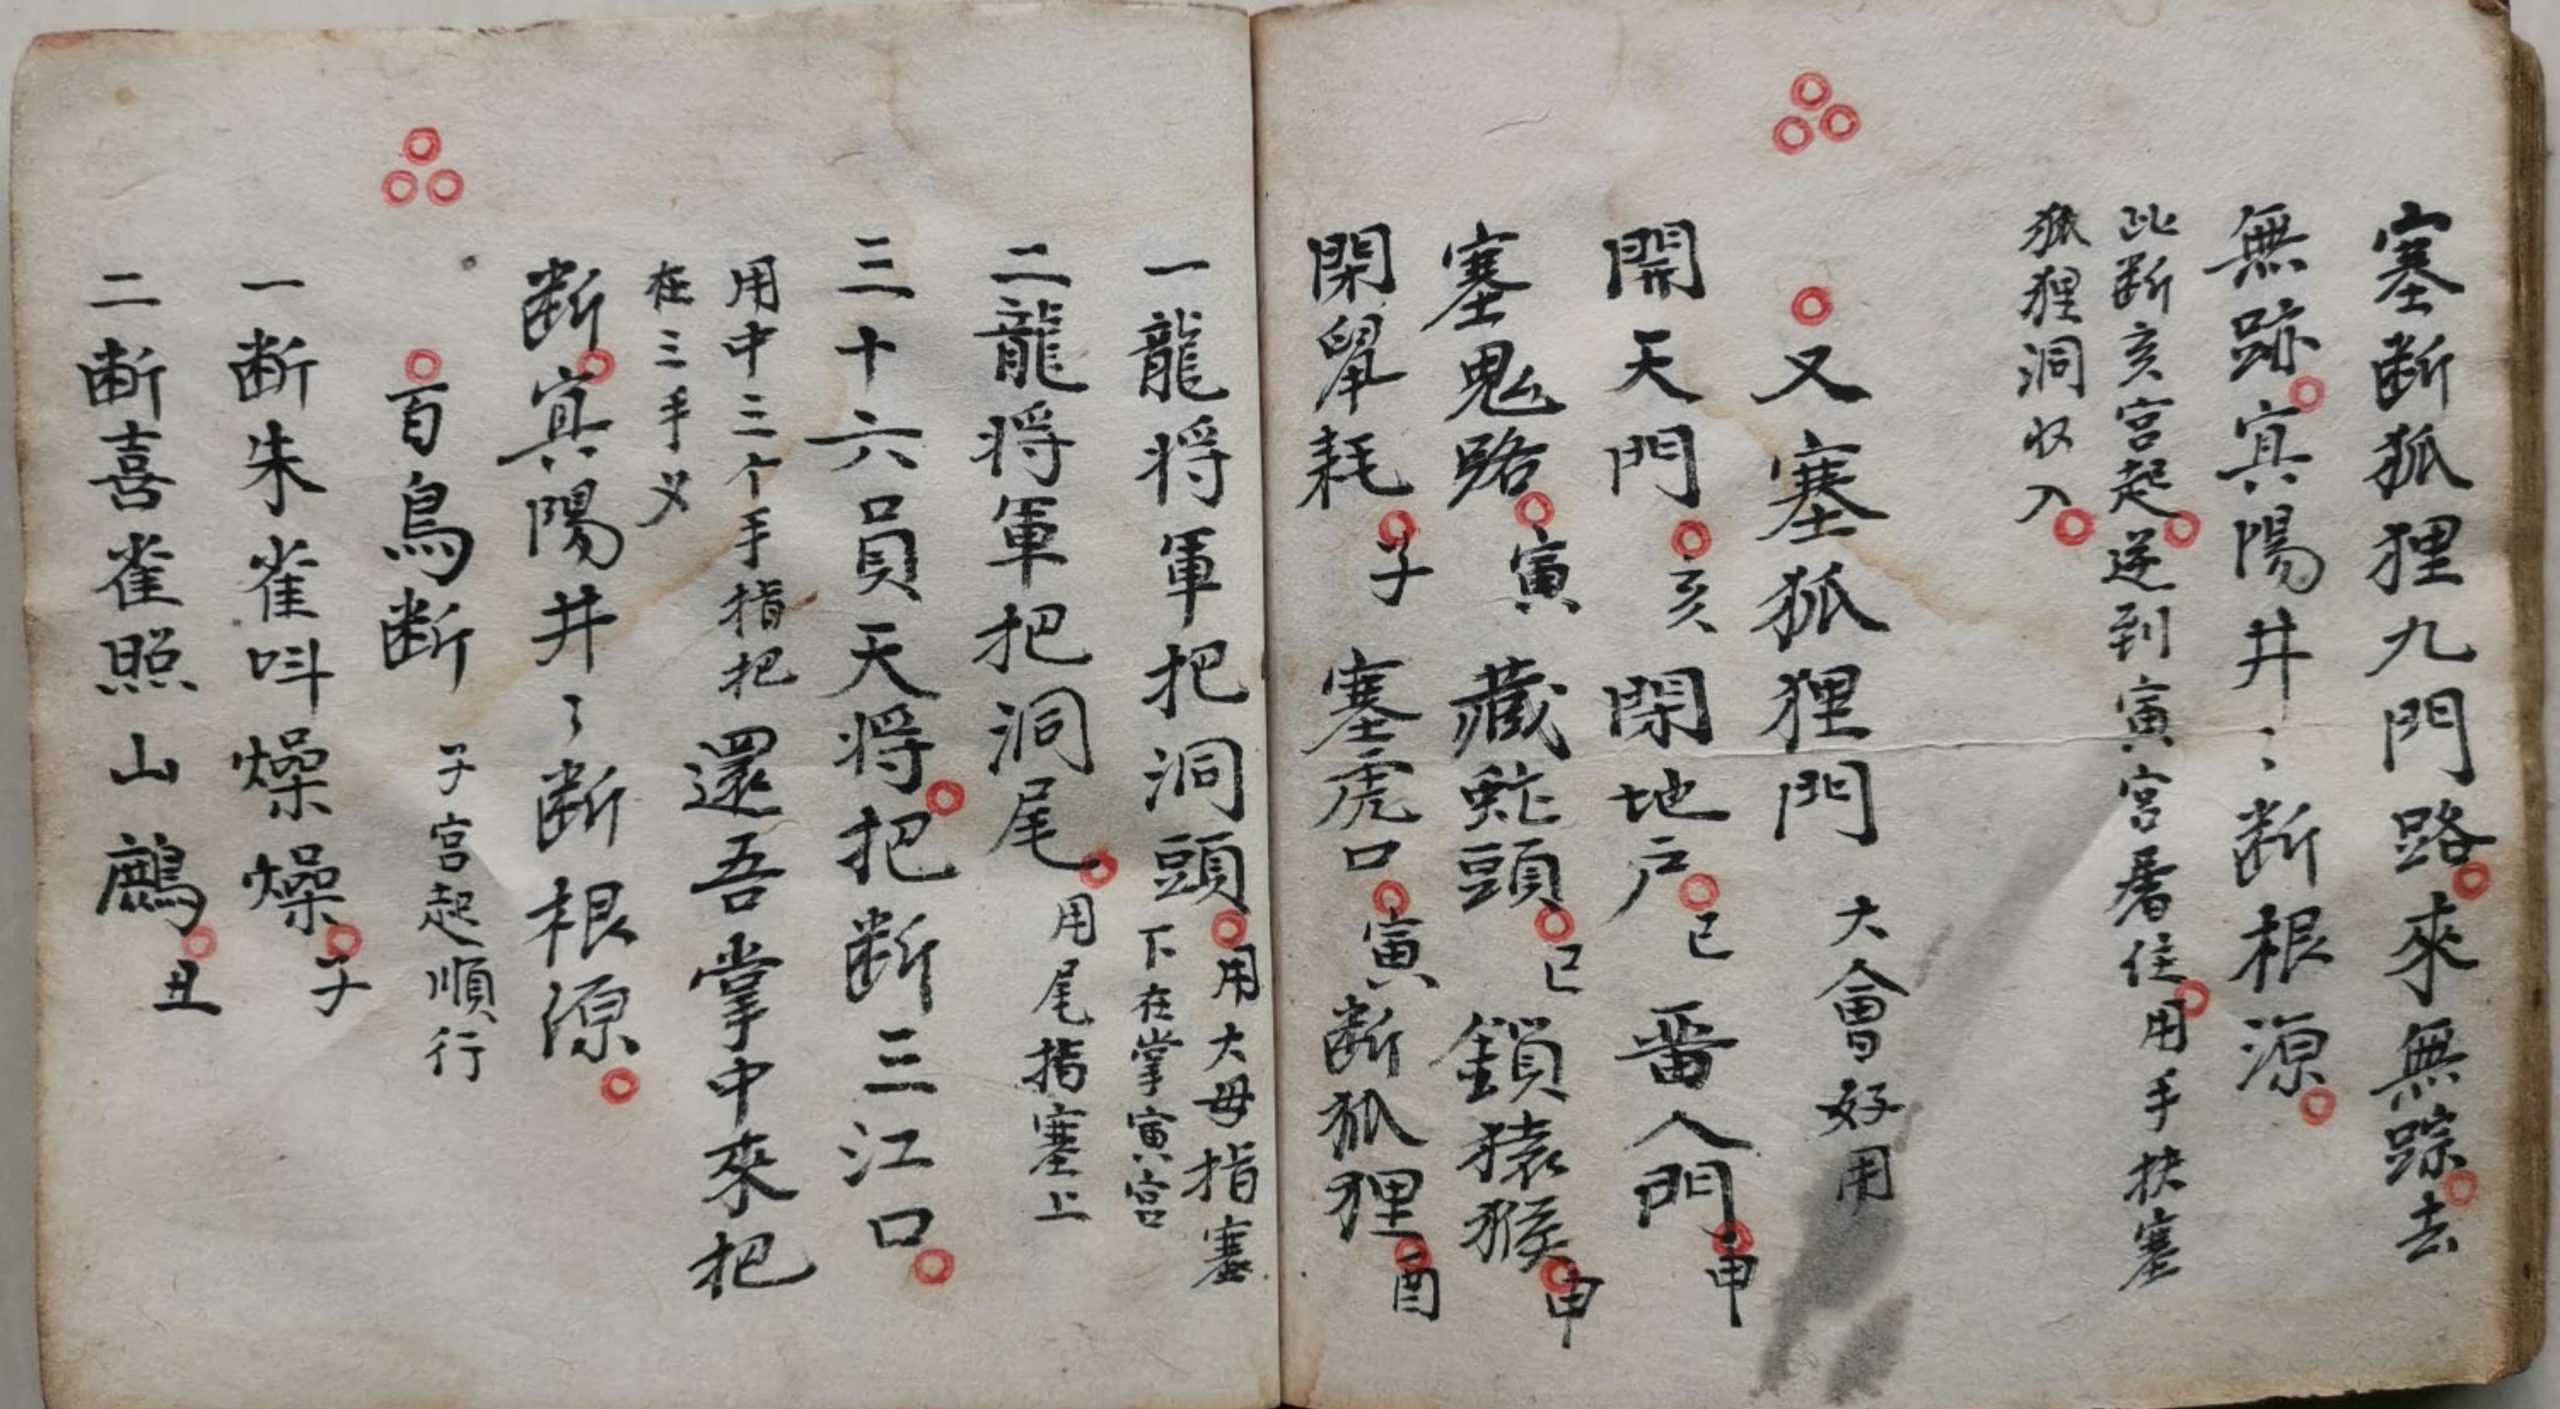 塞断狐狸九門路來無踪去
無跡寘陽井〻断根源
此断亥宮起逆到寅宮暑住用手抉塞
狐狸洞収入
又塞狐狸門 大會好用
開天門亥閑地户巳番人門申
塞鬼路寅藏蛇頭巳鎖猿猴申
閑鼠耗子塞虎口寅断狐狸酉
一龍将軍把洞頭用大母指塞
下在掌寅宮
二龍将軍把洞尾用尾指塞上
三十六員天将把断三江口
用中三个手指把還吾掌中來把
在三手义
断寘陽井〻断根源
百鳥断 子宮起順行
一断朱雀呌燥燥子
二断喜雀照山鷓丑